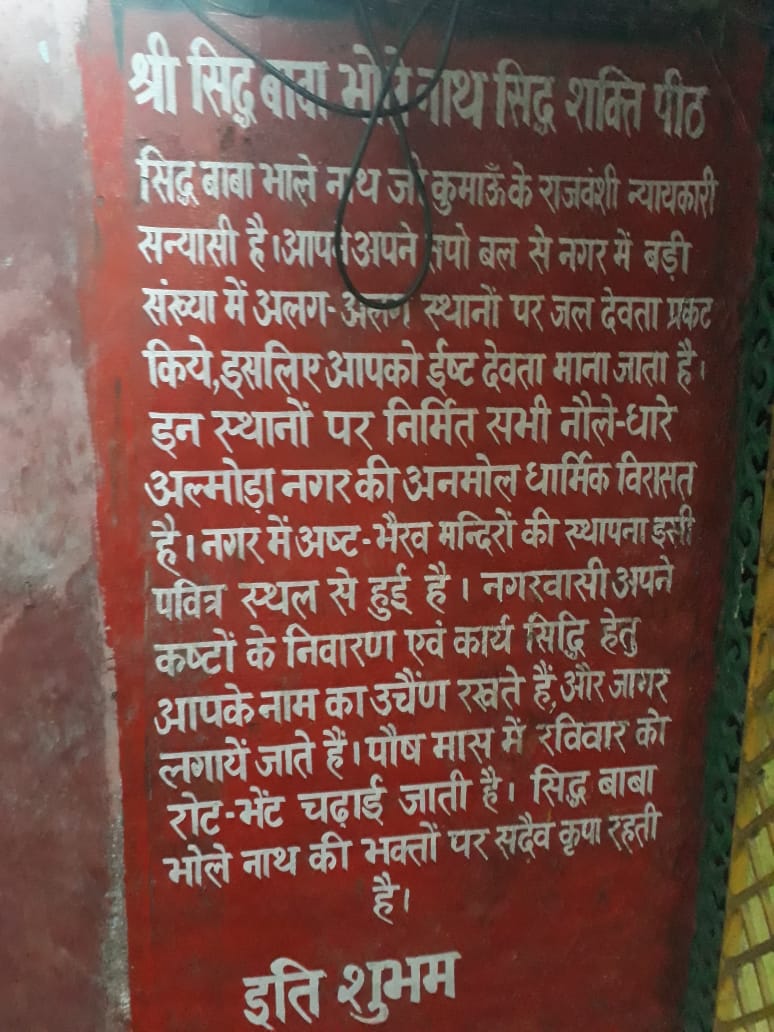 श्री सिद्ध बाबा भोले नाथ सिद्ध शक्ति पीठ
सिद्ध बाबा भाले नाथ जो कुमाऊँ के राजवंशी न्यायकारी
सन्यासी है। आपने अपने तपो बल से नगर में बड़ी
संख्या में अलग-अलग स्थानों पर जल देवता प्रकट
किये, इसलिए आपको ईष्ट देवता माना जाता है।
इन स्थानों पर निर्मित सभी नौले-धारे
अल्मोड़ा नगर की अनमोल धार्मिक विरासत
है। नगर में अष्ट-भैरव मन्दिरों की स्थापना इसी
पवित्र स्थल से हुई है। नगरवासी अपने
कष्टों के निवारण एवं कार्य सिद्धि हेतु
आपके नाम का उचैंण रखते हैं, और जागर
लगायें जाते हैं। पौष मास में रविवार को
रोट-भेंट चढ़ाई जाती है। सिद्ध बाबा
भोले नाथ की भक्तों पर सदैव कृपा रहती
है।
इति शुभम